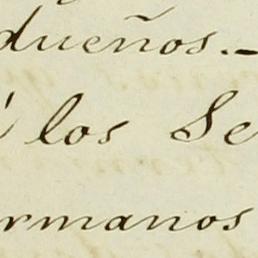 dueños.—
á los Se
rmanos